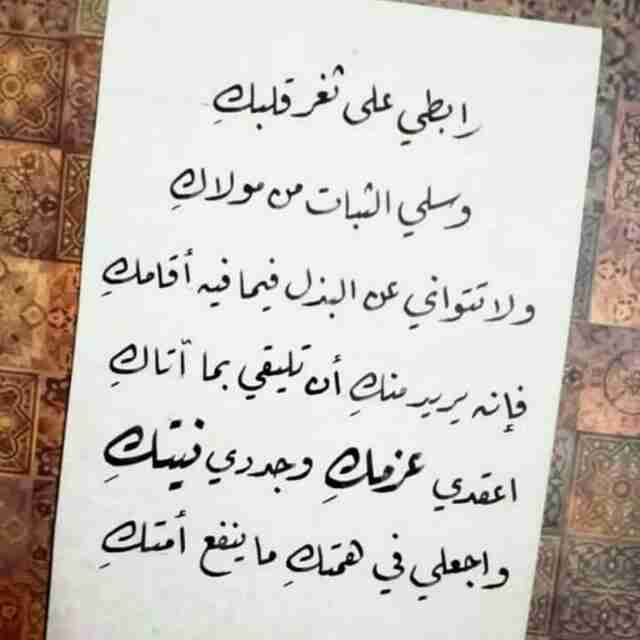 رابطي على ثغر قلبكِ
وسلي الثبات من مولاكِ
ولا تتواني عن البذل فيما فيه أقامكِ
فإنه يريد منكِ أن تليقي بما آتاكِ
اعقدي عزمكِ وجددي نيتكِ
واجعلي في همتكِ ما ينفع أمتكِ